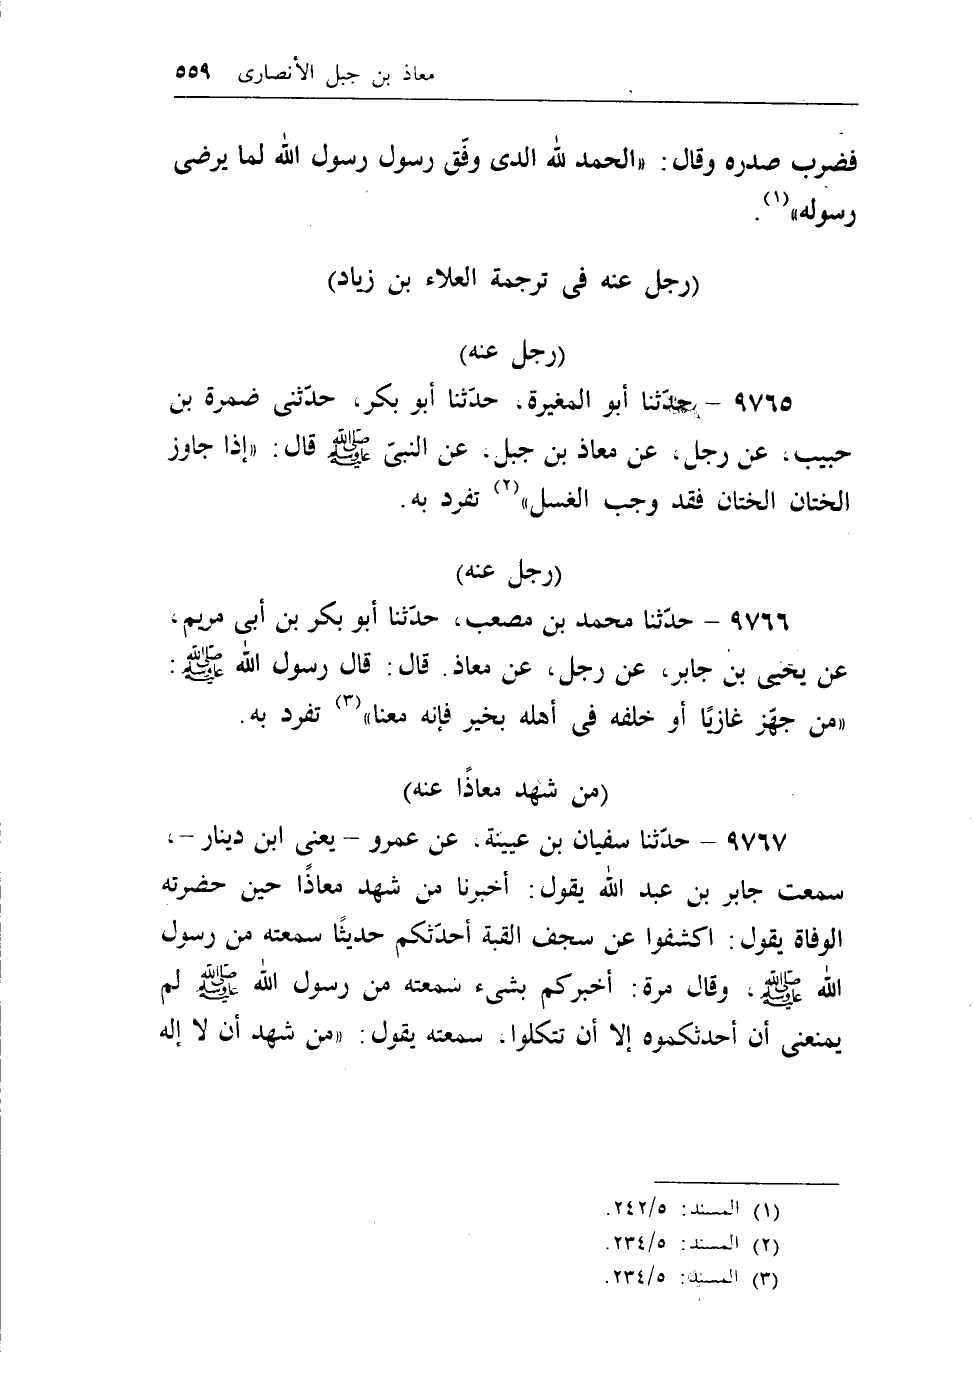 معاذ بن جبل الأنصارى ٥٥٩
فضرب صدره وقال: «الحمد لله الدى وفّق رسول رسول الله لما يرضى
رسوله»(١).
(رجل عنه فى ترجمة العلاء بن زياد)
(رجل عنه)
٩٧٦٥ – حدّثنا أبو المغيرة، حدّثنا أبو بكر، حدّثنى ضمرة بن
حبيب، عن رجل، عن معاذ بن جبل، عن النبىّ ﷺ قال: «إذا جاوز
الختان الختان فقد وجب الغسل»(٢) تفرد به.
(رجل عنه)
٩٧٦٦ – حدّثنا محمد بن مصعب، حدّثنا أبو بكر بن أبى مريم،
عن يحيى بن جابر، عن رجل، عن معاذ. قال: قال رسول الله ﷺ:
«من جهّز غازيًا أو خلفه فى أهله بخير فإنه معنا»(٣) تفرد به.
(من شهد معاذًا عنه)
٩٧٦٧ – حدّثنا سفيان بن عيينة، عن عمرو – يعنى ابن دينار –،
سمعت جابر بن عبد الله يقول: أخبرنا من شهد معاذًا حين حضرته
الوفاة يقول: اكشفوا عن سجف القبة أحدّثكم حديثًا سمعته من رسول
الله ﷺ، وقال مرة: أخبركم بشىء سمعته من رسول الله ﷺ لم
يمنعنى أن أحدثكموه إلا أن تتكلوا، سمعته يقول: «من شهد أن لا إله
(١) المسند: ٢٤٢/٥.
(٢) المسند: ٢٣٤/٥.
(٣) المسند: ٢٣٤/٥.